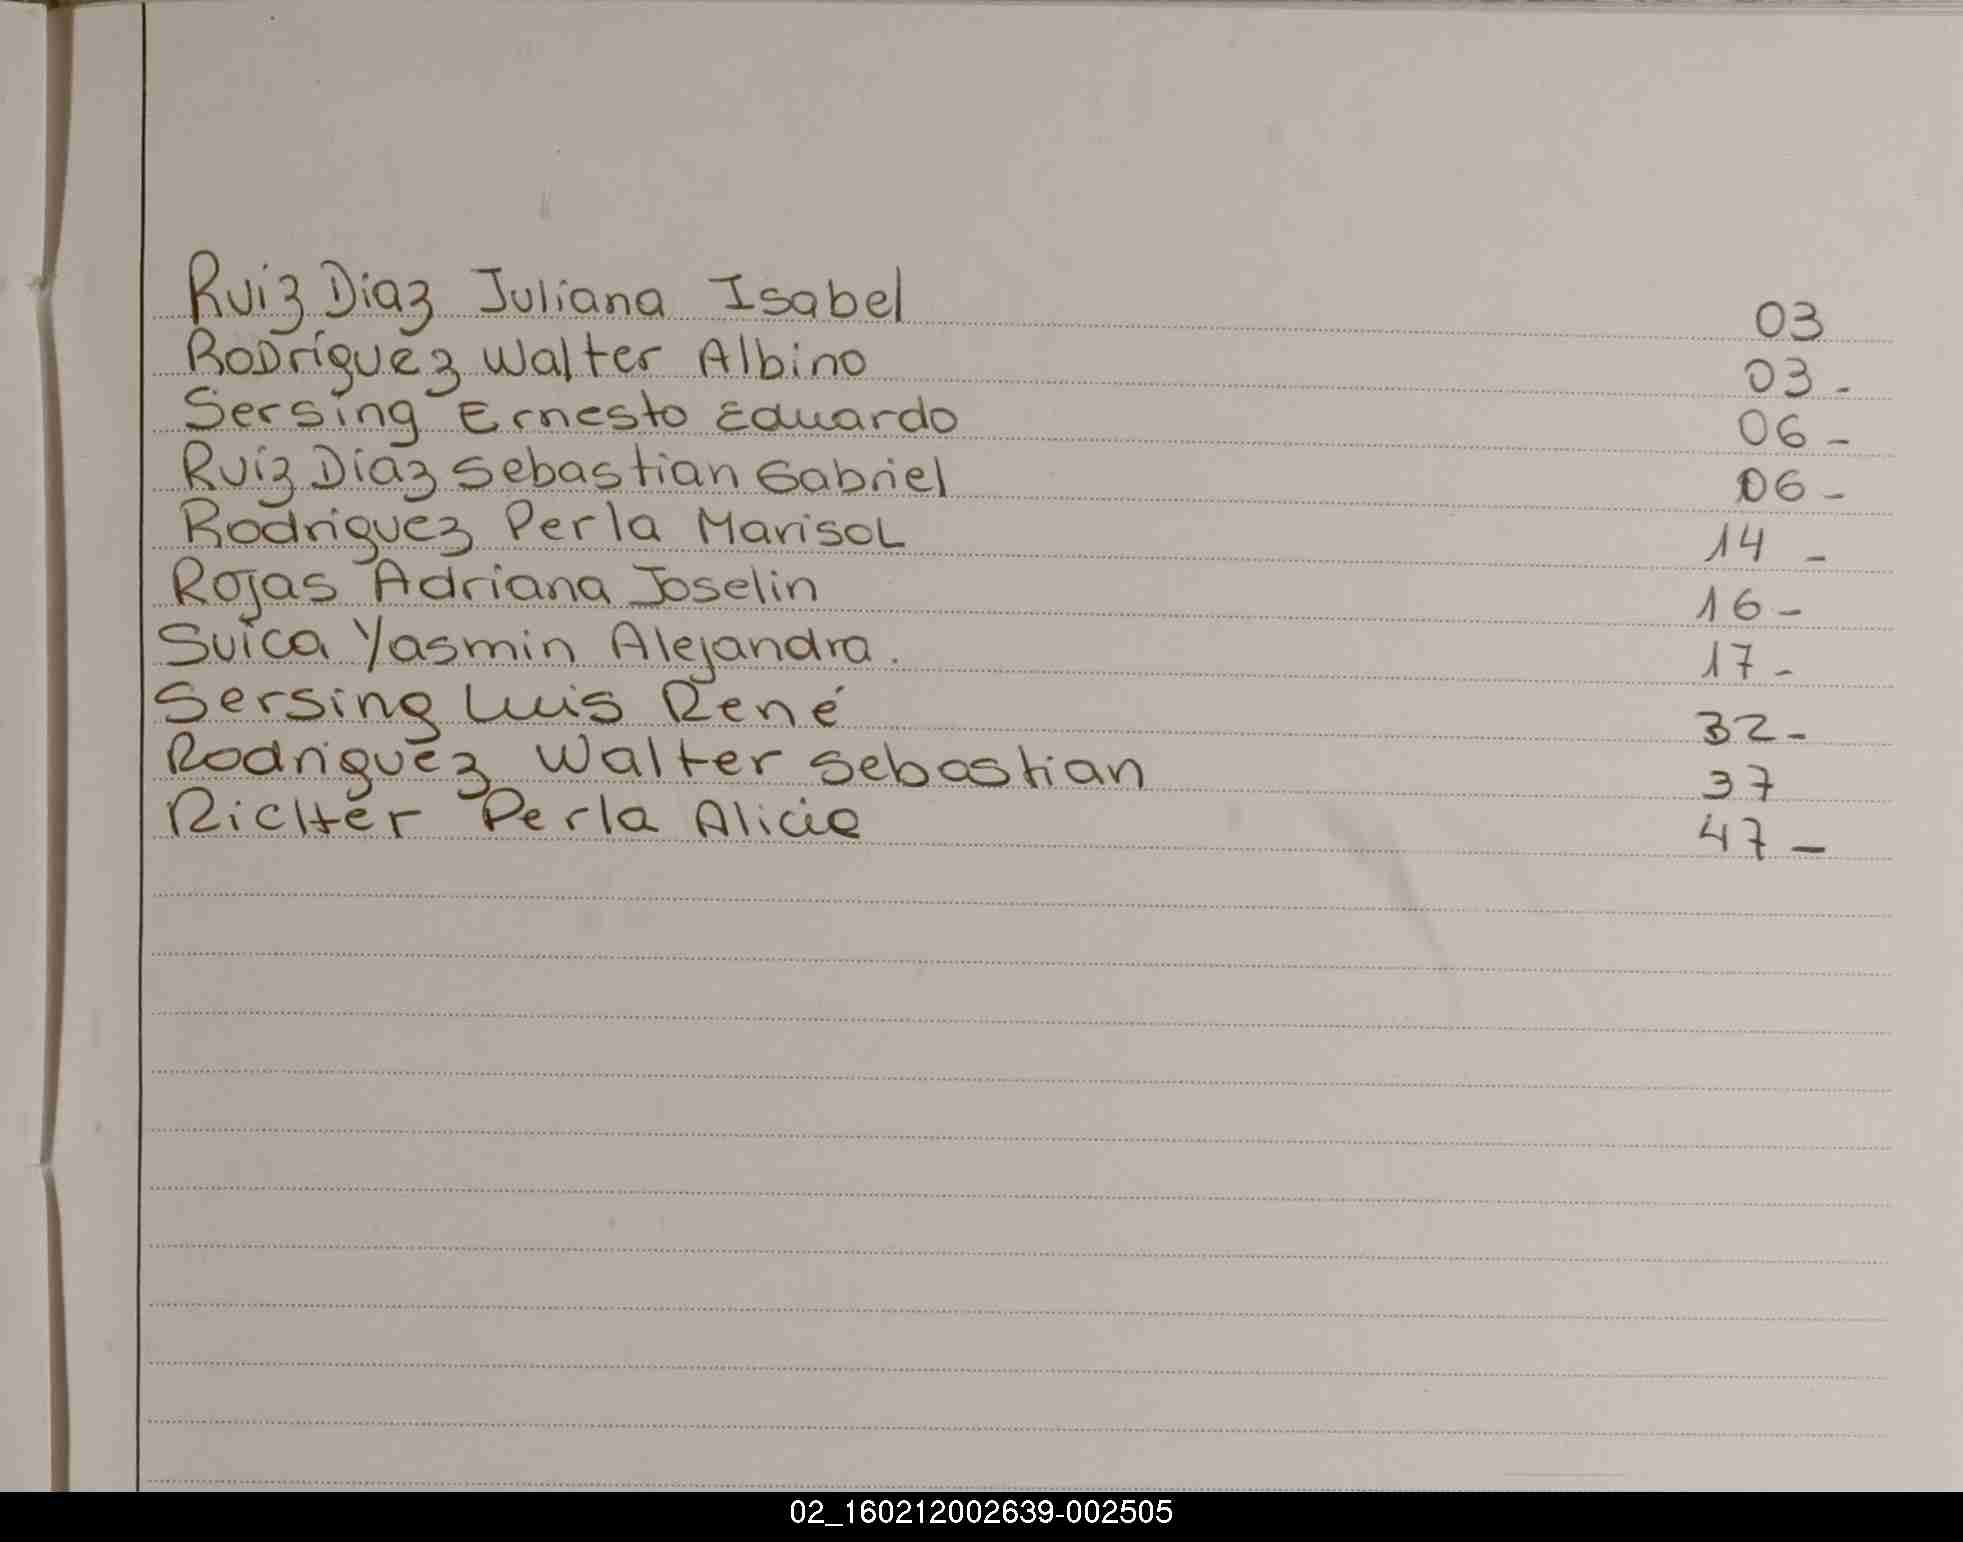 Ruiz Diaz Juliana Isabel 03
Rodríguez Walter Albino 03 -
Sersing Ernesto Eduardo 06 -
Ruiz Díaz Sebastian Gabriel 06 -
Rodriguez Perla Marisol 14 -
Rojas Adriana Joselin 16 -
Suica Yasmin Alejandra. 17 -
Sersing Luis René 32 -
Rodriguez Walter Sebastian 37
Richter Perla Alicia 47 -
02_160212002639-002505